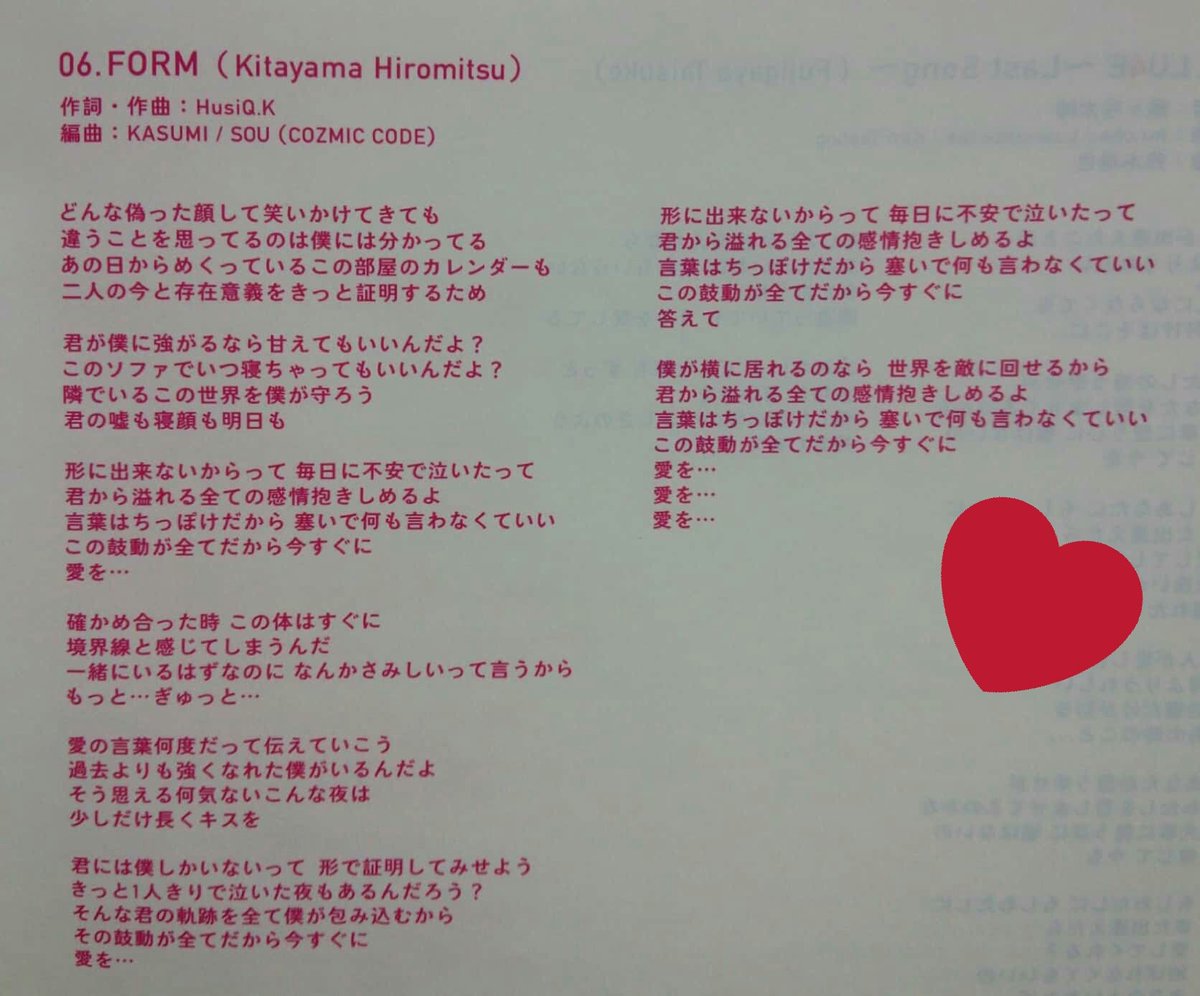 06. FORM (Kitayama Hiromitsu)
作詞・作曲：HusiQ.K
編曲：KASUMI / SOU (COZMIC CODE)
どんな偽った顔して笑いかけてきても
違うことを思ってるのは僕には分かってる
あの日からめくっているこの部屋のカレンダーも
二人の今と存在意義をきっと証明するため
君が僕に強がるなら甘えてもいいんだよ？
このソファでいつ寝ちゃってもいいんだよ？
隣でいるこの世界を僕が守ろう
君の嘘も寝顔も明日も
形に出来ないからって 毎日に不安で泣いたって
君から溢れる全ての感情抱きしめるよ
言葉はちっぽけだから 塞いで何も言わなくていい
この鼓動が全てだから今すぐに
愛を…
確かめ合った時 この体はすぐに
境界線と感じてしまうんだ
一緒にいるはずなのに なんかさみしいって言うから
もっと…ぎゅっと…
愛の言葉何度だって伝えていこう
過去よりも強くなれた僕がいるんだよ
そう思える何気ないこんな夜は
少しだけ長くキスを
君には僕しかいないって 形で証明してみせよう
きっと1人きりで泣いた夜もあるんだろう？
そんな君の軌跡を全て僕が包み込むから
その鼓動が全てだから今すぐに
愛を…
形に出来ないからって 毎日に不安で泣いたって
君から溢れる全ての感情抱きしめるよ
言葉はちっぽけだから 塞いで何も言わなくていい
この鼓動が全てだから今すぐに
答えて
僕が横に居れるのなら 世界を敵に回せるから
君から溢れる全ての感情抱きしめるよ
言葉はちっぽけだから 塞いで何も言わなくていい
この鼓動が全てだから今すぐに
愛を…
愛を…
愛を…